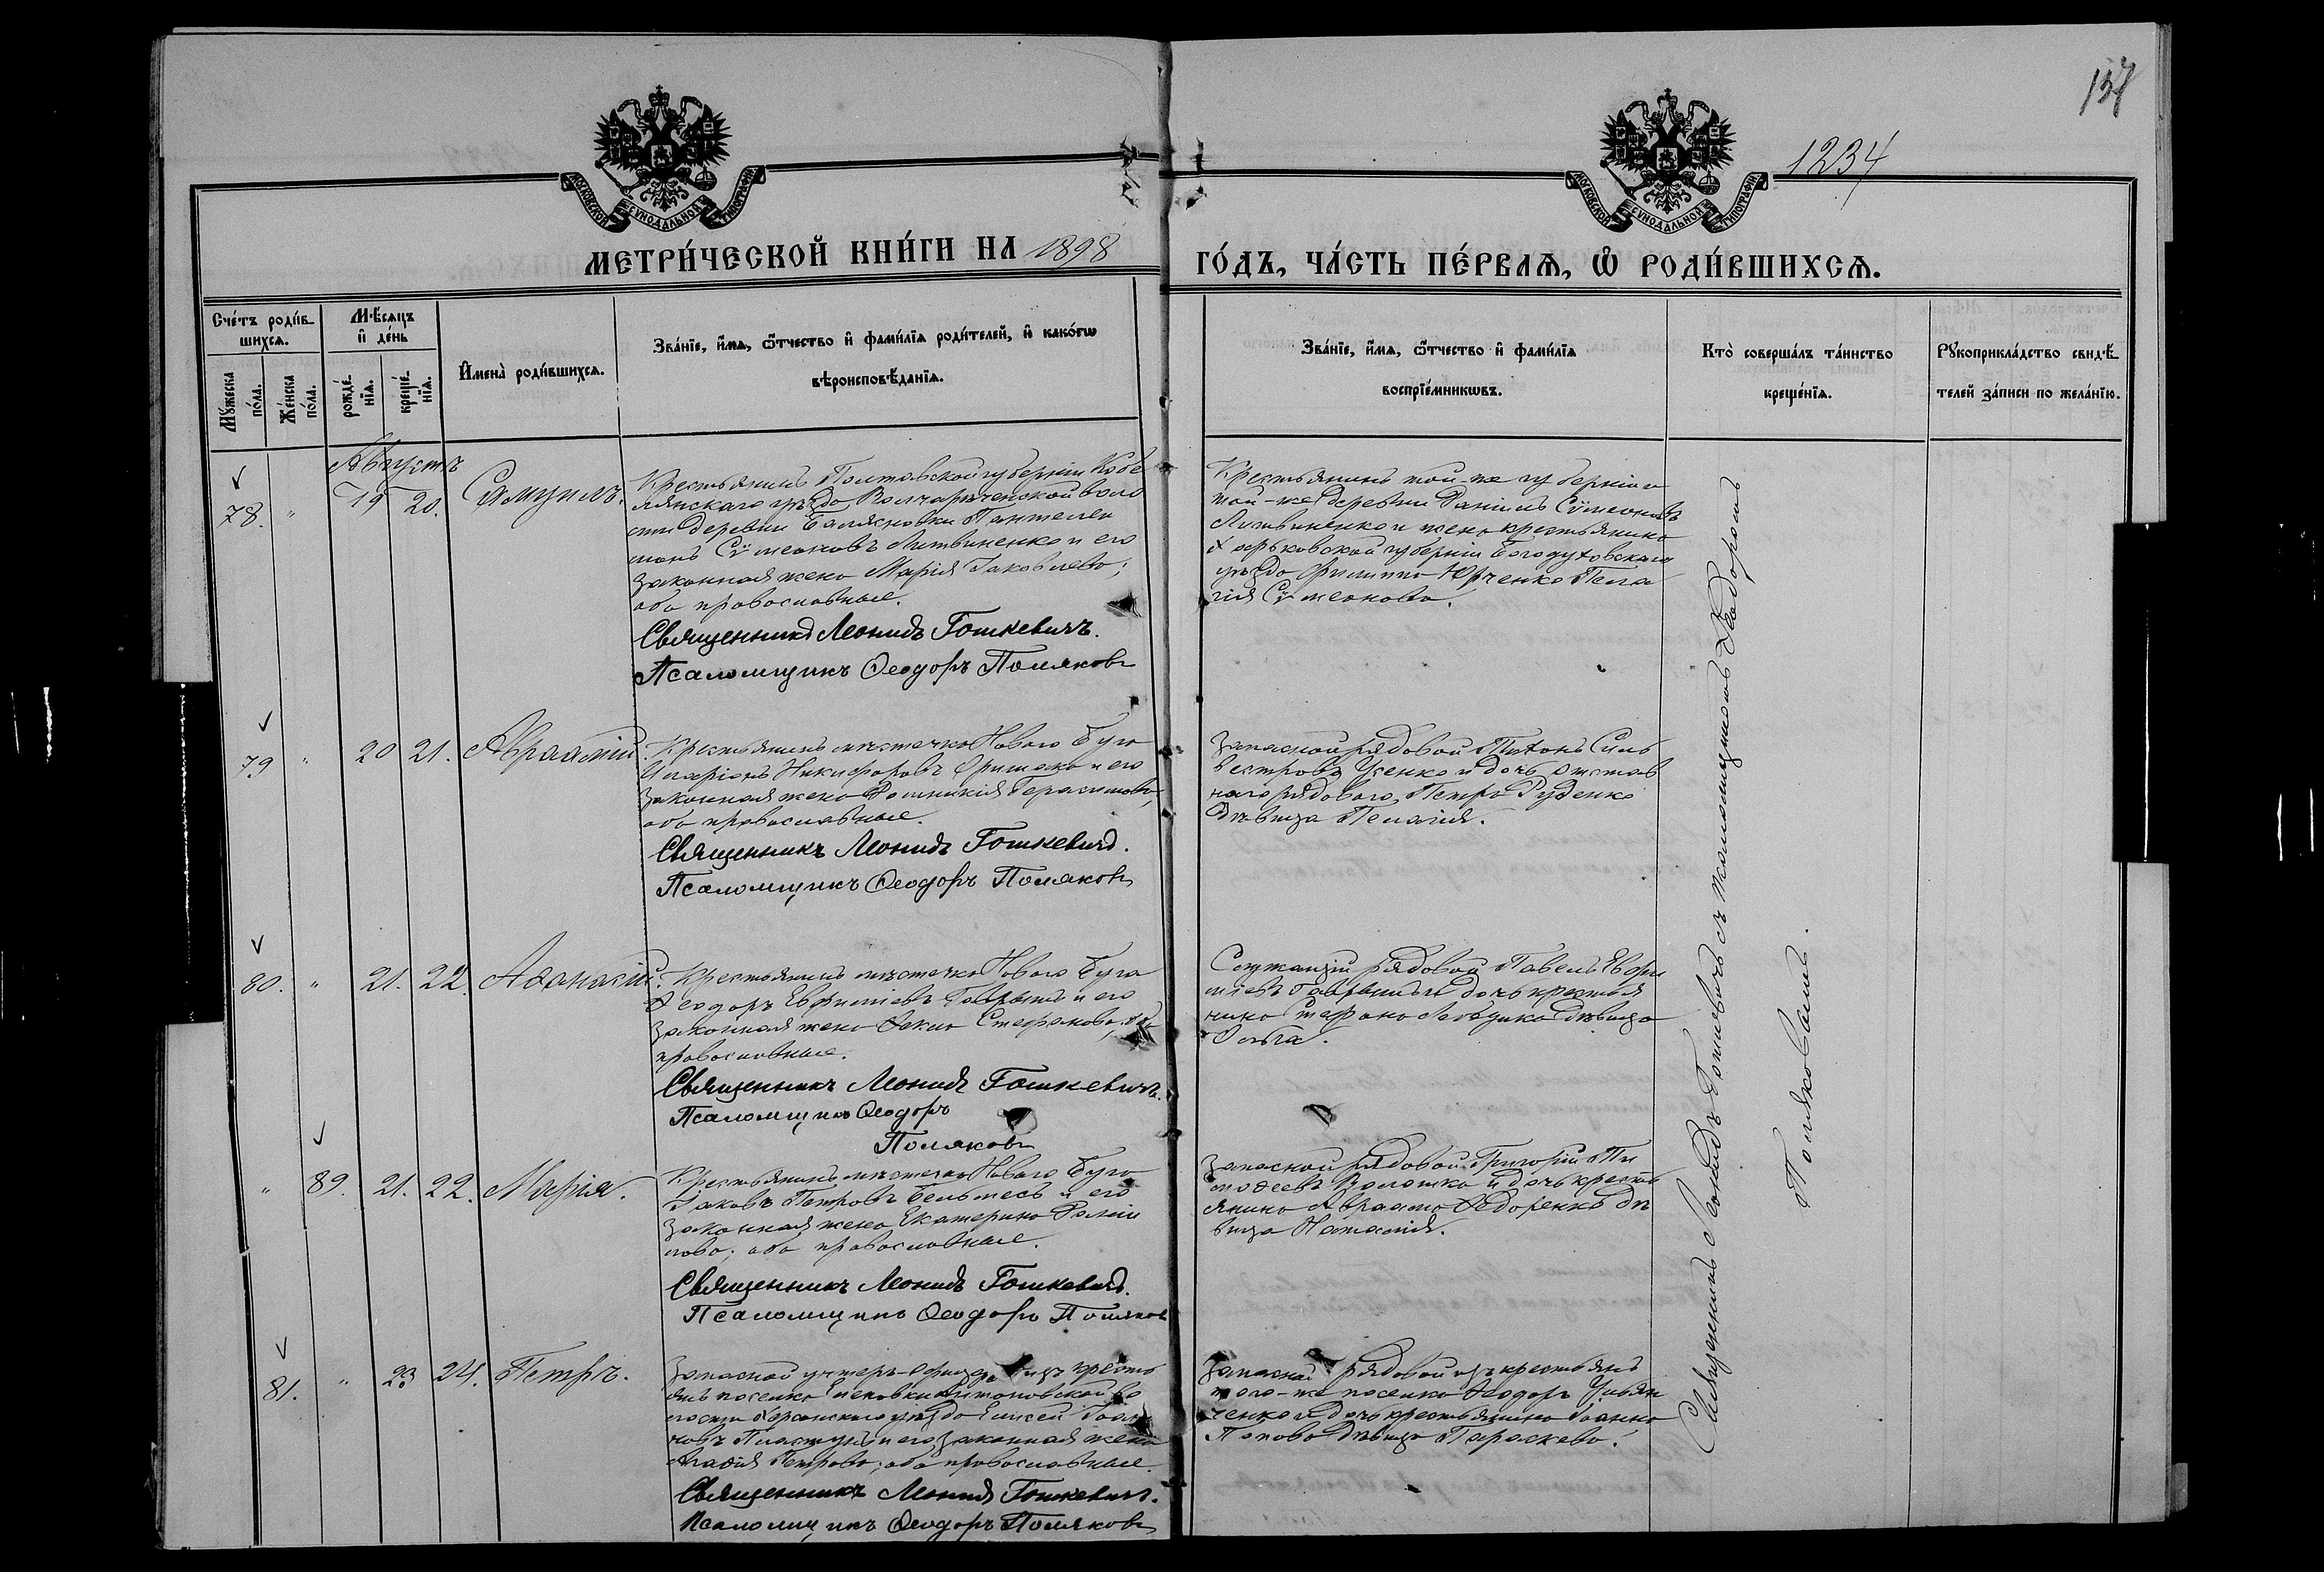 137
1234
МОСКОВСКОЙ СѴНОДАЛЬНОЙ ТИПОГРАФІИ
МОСКОВСКОЙ СѴНОДАЛЬНОЙ ТИПОГРАФІИ
МЕТРИ́ЧЕСКОЙ КНИ́ГИ НА 1898
ГО́ДЪ, ЧА́СТЬ ПЕ́РВАѦ, Ѡ҆ РОДИ́ВШИХСѦ.
Сче́тъ роди́в-
шихсѧ.
Мѣ́сѧцъ
и҆ де́нь
Мꙋ́жеска
по́ла.
Же́нска
по́ла.
рожде́-
нїѧ.
креще́-
нїѧ.
И҆мена̀ роди́вшихсѧ.
Зва́нїе, и҆́мѧ, ѻ҆́тчество и҆ фами́лїѧ роди́телей, и҆ како́гѡ
вѣроисповѣ́данїѧ.
Зва́нїе, и҆́мѧ, ѻ҆́тчество и҆ фами́лїѧ
воспрїе́мникѡвъ.
Кто̀ соверша́лъ та́инство
креще́нїѧ.
Рꙋкоприкла́дство свидѣ́-
телей за́писи по жела́нїю.
Августъ
78. " 19 20. Самуилъ.
Крестьянинъ Полтавской губерніи Кобе
лякскаго уѣзда Волчарѣченской воло
сти деревни Балясновки Пантелеи
монъ Сѵмеоновъ Литвиненко и его
законная жена Марія Іаковлева;
оба православные.
Священникъ Леонидъ Гошкевичъ.
Псаломщикъ Ѳеодоръ Поляковъ
Крестьянинъ той-же губерніи и
той-же деревни Даніилъ Сѵмеоновъ
Литвиненко и жена крестьянина
Харьковской губерніи Богодуховскаго
уѣзда Филиппа Юрченко Пела
гія Сѵмеонова.
79 " 20 21. Авраамій.
Крестьянинъ мѣстечка Новаго Буга
Иларіонъ Никифоровъ Оришака и его
законная жена Домникія Герасимова,
оба православные.
Священникъ Леонидъ Гошкевичъ.
Псаломщикъ Ѳеодоръ Поляковъ
Запасной рядовой Тихонъ Силь
вестровъ Усенко и дочь отстав
наго рядового Петра Руденко
дѣвица Пелагія.
80. " 21. 22. Аѳанасій.
Крестьянинъ мѣстечка Новаго Буга
Ѳеодоръ Евфиміевъ Гаврышъ и его
законная жена Ѳекла Стефанова; оба
православные.
Священникъ Леонидъ Гошкевичъ.
Псаломщикъ Ѳеодоръ
Поляковъ
Служащій рядовой Павелъ Евфи
міевъ Гаврышъ и дочь крестья
нина Стефана Лебедика дѣвица
Ольга.
" 89. 21. 22. Марія.
Крестьянинъ мѣстечка Новаго Буга
Іаковъ Петровъ Бельмесъ и его
законная жена Екатерина Даніи
лова; оба православные.
Священникъ Леонидъ Гошкевичъ.
Псаломщикъ Ѳеодоръ Поляковъ
Запасной рядовой Григорій Ти
моѳеевъ Волошко и дочь кресть
янина Авраама Ѳедоренко дѣ
вица Наталія.
81. " 23 24. Петръ.
Запасной унтеръ-офицеръ изъ кресть
янъ поселка
лости Херсонскаго уѣзда Елисей Іоан
новъ Пластунъ и его законная жена
Агаѳія Петрова; оба православные.
Священникъ Леонидъ Гошкевичъ.
Псаломщикъ Ѳеодоръ Поляковъ
Запасной рядовой изъ крестьянъ
того-же поселка Ѳеодоръ Ульян
ченко и дочь крестьянина Іоанна
Попова дѣвица Параскева.
Священникъ Леонидъ Гошкевичъ съ псаломщикомъ Ѳеодоромъ
Поляковымъ.